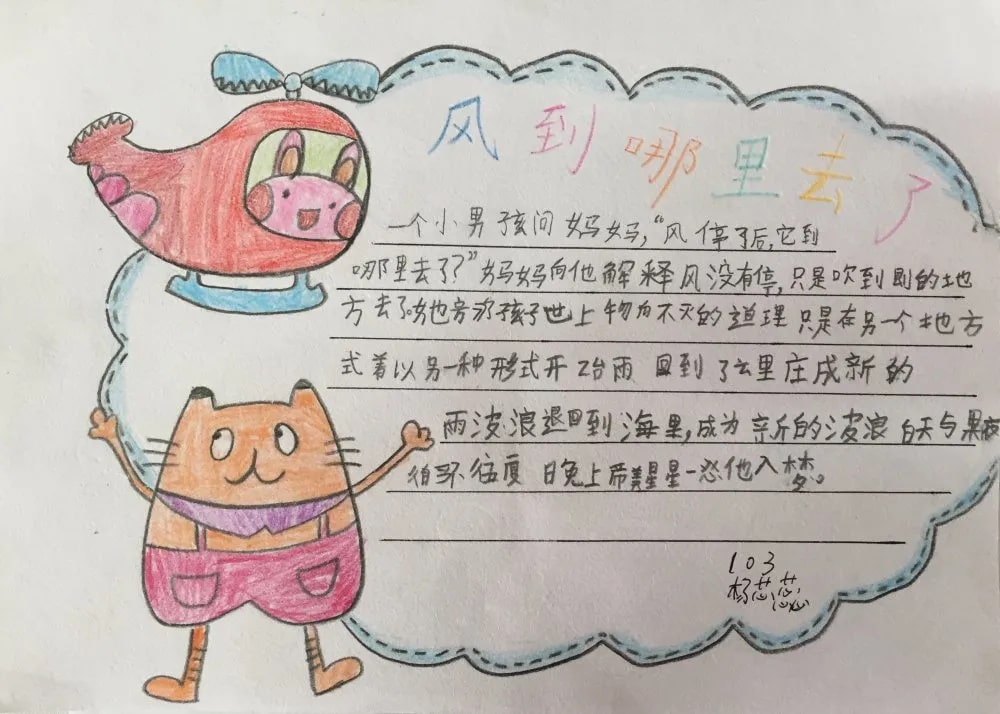 风到哪里去了
一个小男孩问妈妈,“风停了后,它到
哪里去了?”妈妈向他解释风没有停,只是吹到别的地
方去了她告孩子世上物不灭的道理只是在另一个地方
式着以另一种形式开始雨回到了云里庄成新的
雨波浪退回到海里,成为新的波浪白天与黑夜
循环往复 日晚上带着星星一恣他入梦。
103
杨芯蕊